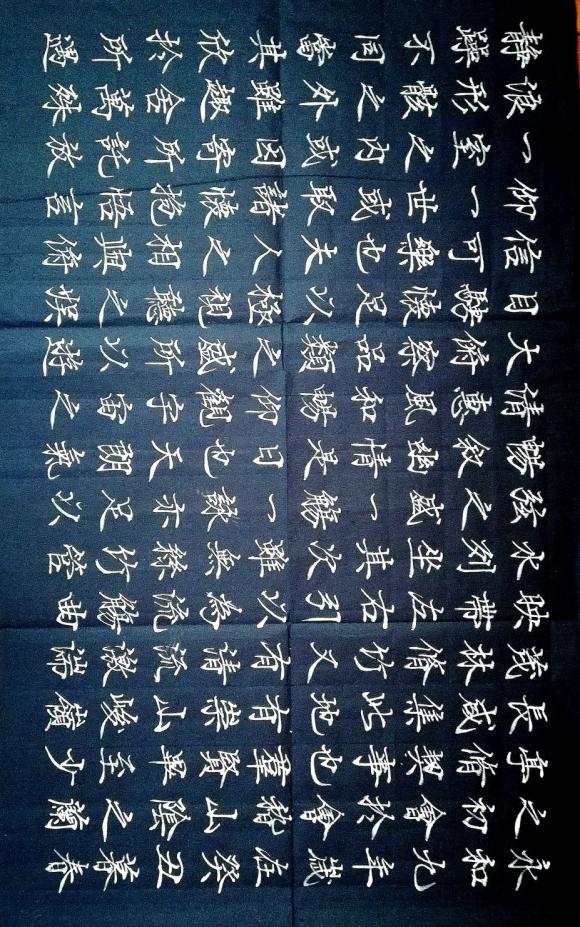 永和九年歲在癸丑暮春
之初會於會稽山陰之蘭
亭脩禊事也羣賢畢至少
長咸集此地有崇山峻嶺
茂林脩竹又有清流激湍
映帶左右引以為流觴曲
水列坐其次雖無絲竹管
弦之盛一觴一詠亦足以
暢敘幽情是日也天朗氣
清惠風和暢仰觀宇宙之
大俯察品類之盛所以遊
目騁懷足以極視聽之娛
信可樂也夫人之相與俯
仰一世或取諸懷抱悟言
一室之內或因寄所託放
浪形骸之外雖趣舍萬殊
靜躁不同當其欣於所遇